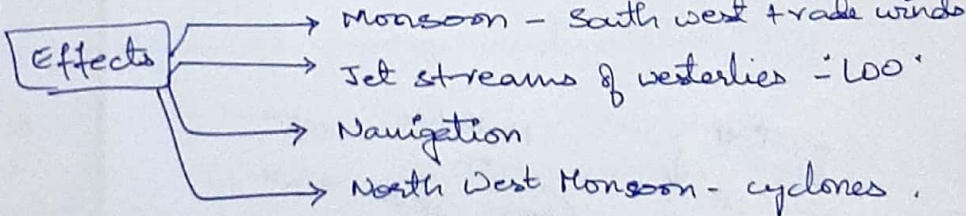 Effects
Monsoon - South west trade winds
Jet streams of westerlies - 'Loo'
Navigation
North West Monsoon - cyclones.